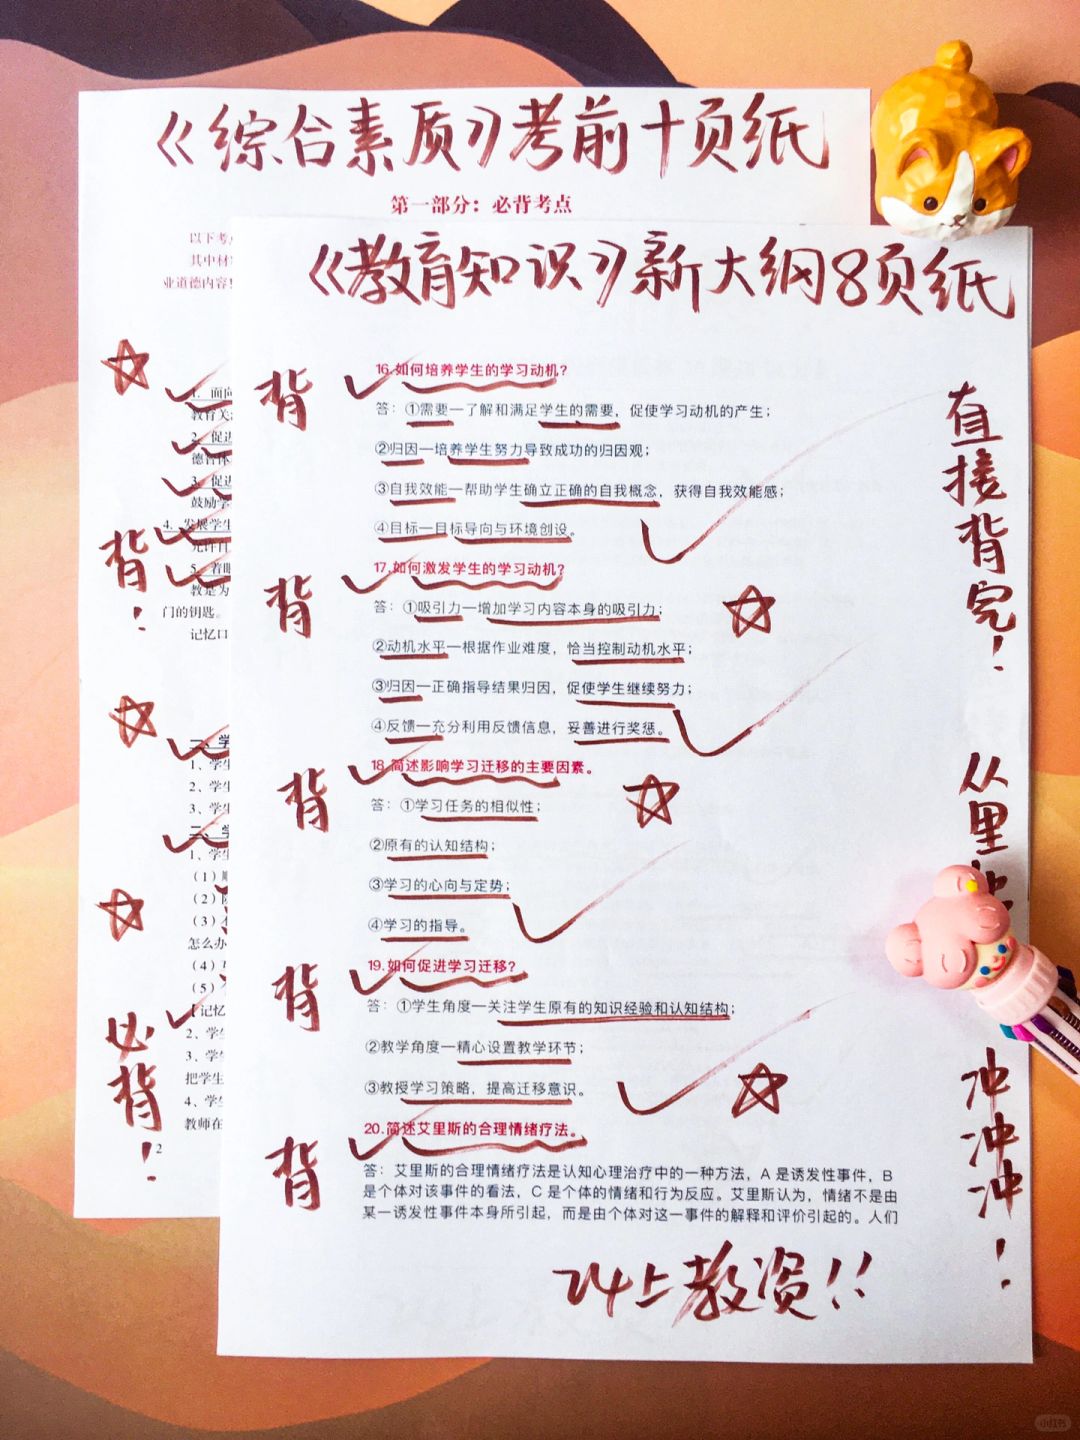 《综合素质》考前十页纸
第一部分：必背考点
以下考
其中材
业道德内容
1. 面向
教育关
2. 促进
德智体
3. 促进
鼓励学
4. 发展学生
允许百
5. 着眼
教是为
门的钥匙。
记忆口
1、学生
2、学生
3、学生
二、学
1、学生
（1）
（2）
（3）
怎么办
（4）
（5）
【记忆
2、学生
3、学生
把学生
4、学生
教师在
2
背！
必背！
《教育知识》新大纲8页纸
背
16.如何培养学生的学习动机？
答：①需要—了解和满足学生的需要，促使学习动机的产生；
②归因—培养学生努力导致成功的归因观；
③自我效能—帮助学生确立正确的自我概念，获得自我效能感；
④目标—目标导向与环境创设。
背
17.如何激发学生的学习动机？
答：①吸引力—增加学习内容本身的吸引力；
②动机水平—根据作业难度，恰当控制动机水平；
③归因—正确指导结果归因，促使学生继续努力；
④反馈—充分利用反馈信息，妥善进行奖惩。
背
18.简述影响学习迁移的主要因素。
答：①学习任务的相似性；
②原有的认知结构；
③学习的心向与定势；
④学习的指导。
背
19.如何促进学习迁移？
答：①学生角度—关注学生原有的知识经验和认知结构；
②教学角度—精心设置教学环节；
③教授学习策略，提高迁移意识。
背
20.简述艾里斯的合理情绪疗法。
答：艾里斯的合理情绪疗法是认知心理治疗中的一种方法，A 是诱发性事件，B
是个体对该事件的看法，C 是个体的情绪和行为反应。艾里斯认为，情绪不是由
某一诱发性事件本身所引起，而是由个体对这一事件的解释和评价引起的。人们
24上教资！！
直接背完！
从里
冲冲冲！
小红书